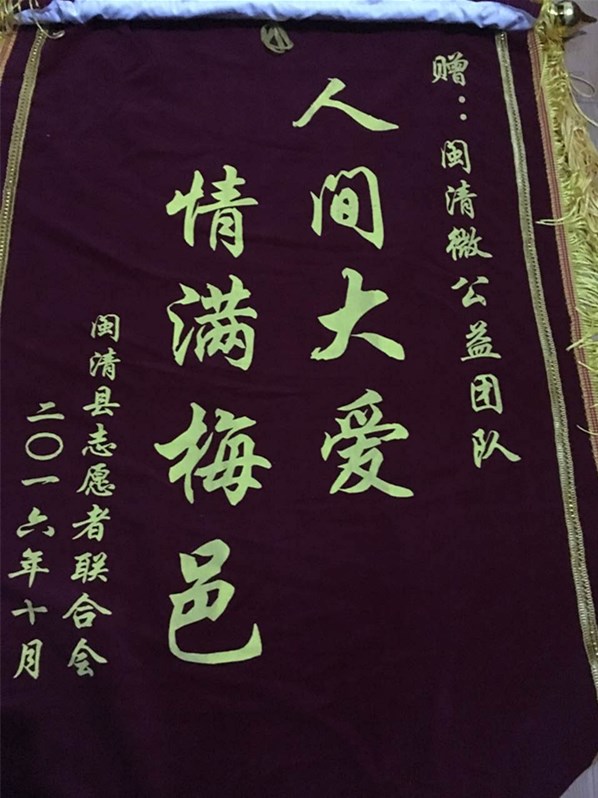 赠：闽清微公益团队
人间大爱
情满梅邑
闽清县志愿者联合会
二〇一六年十月